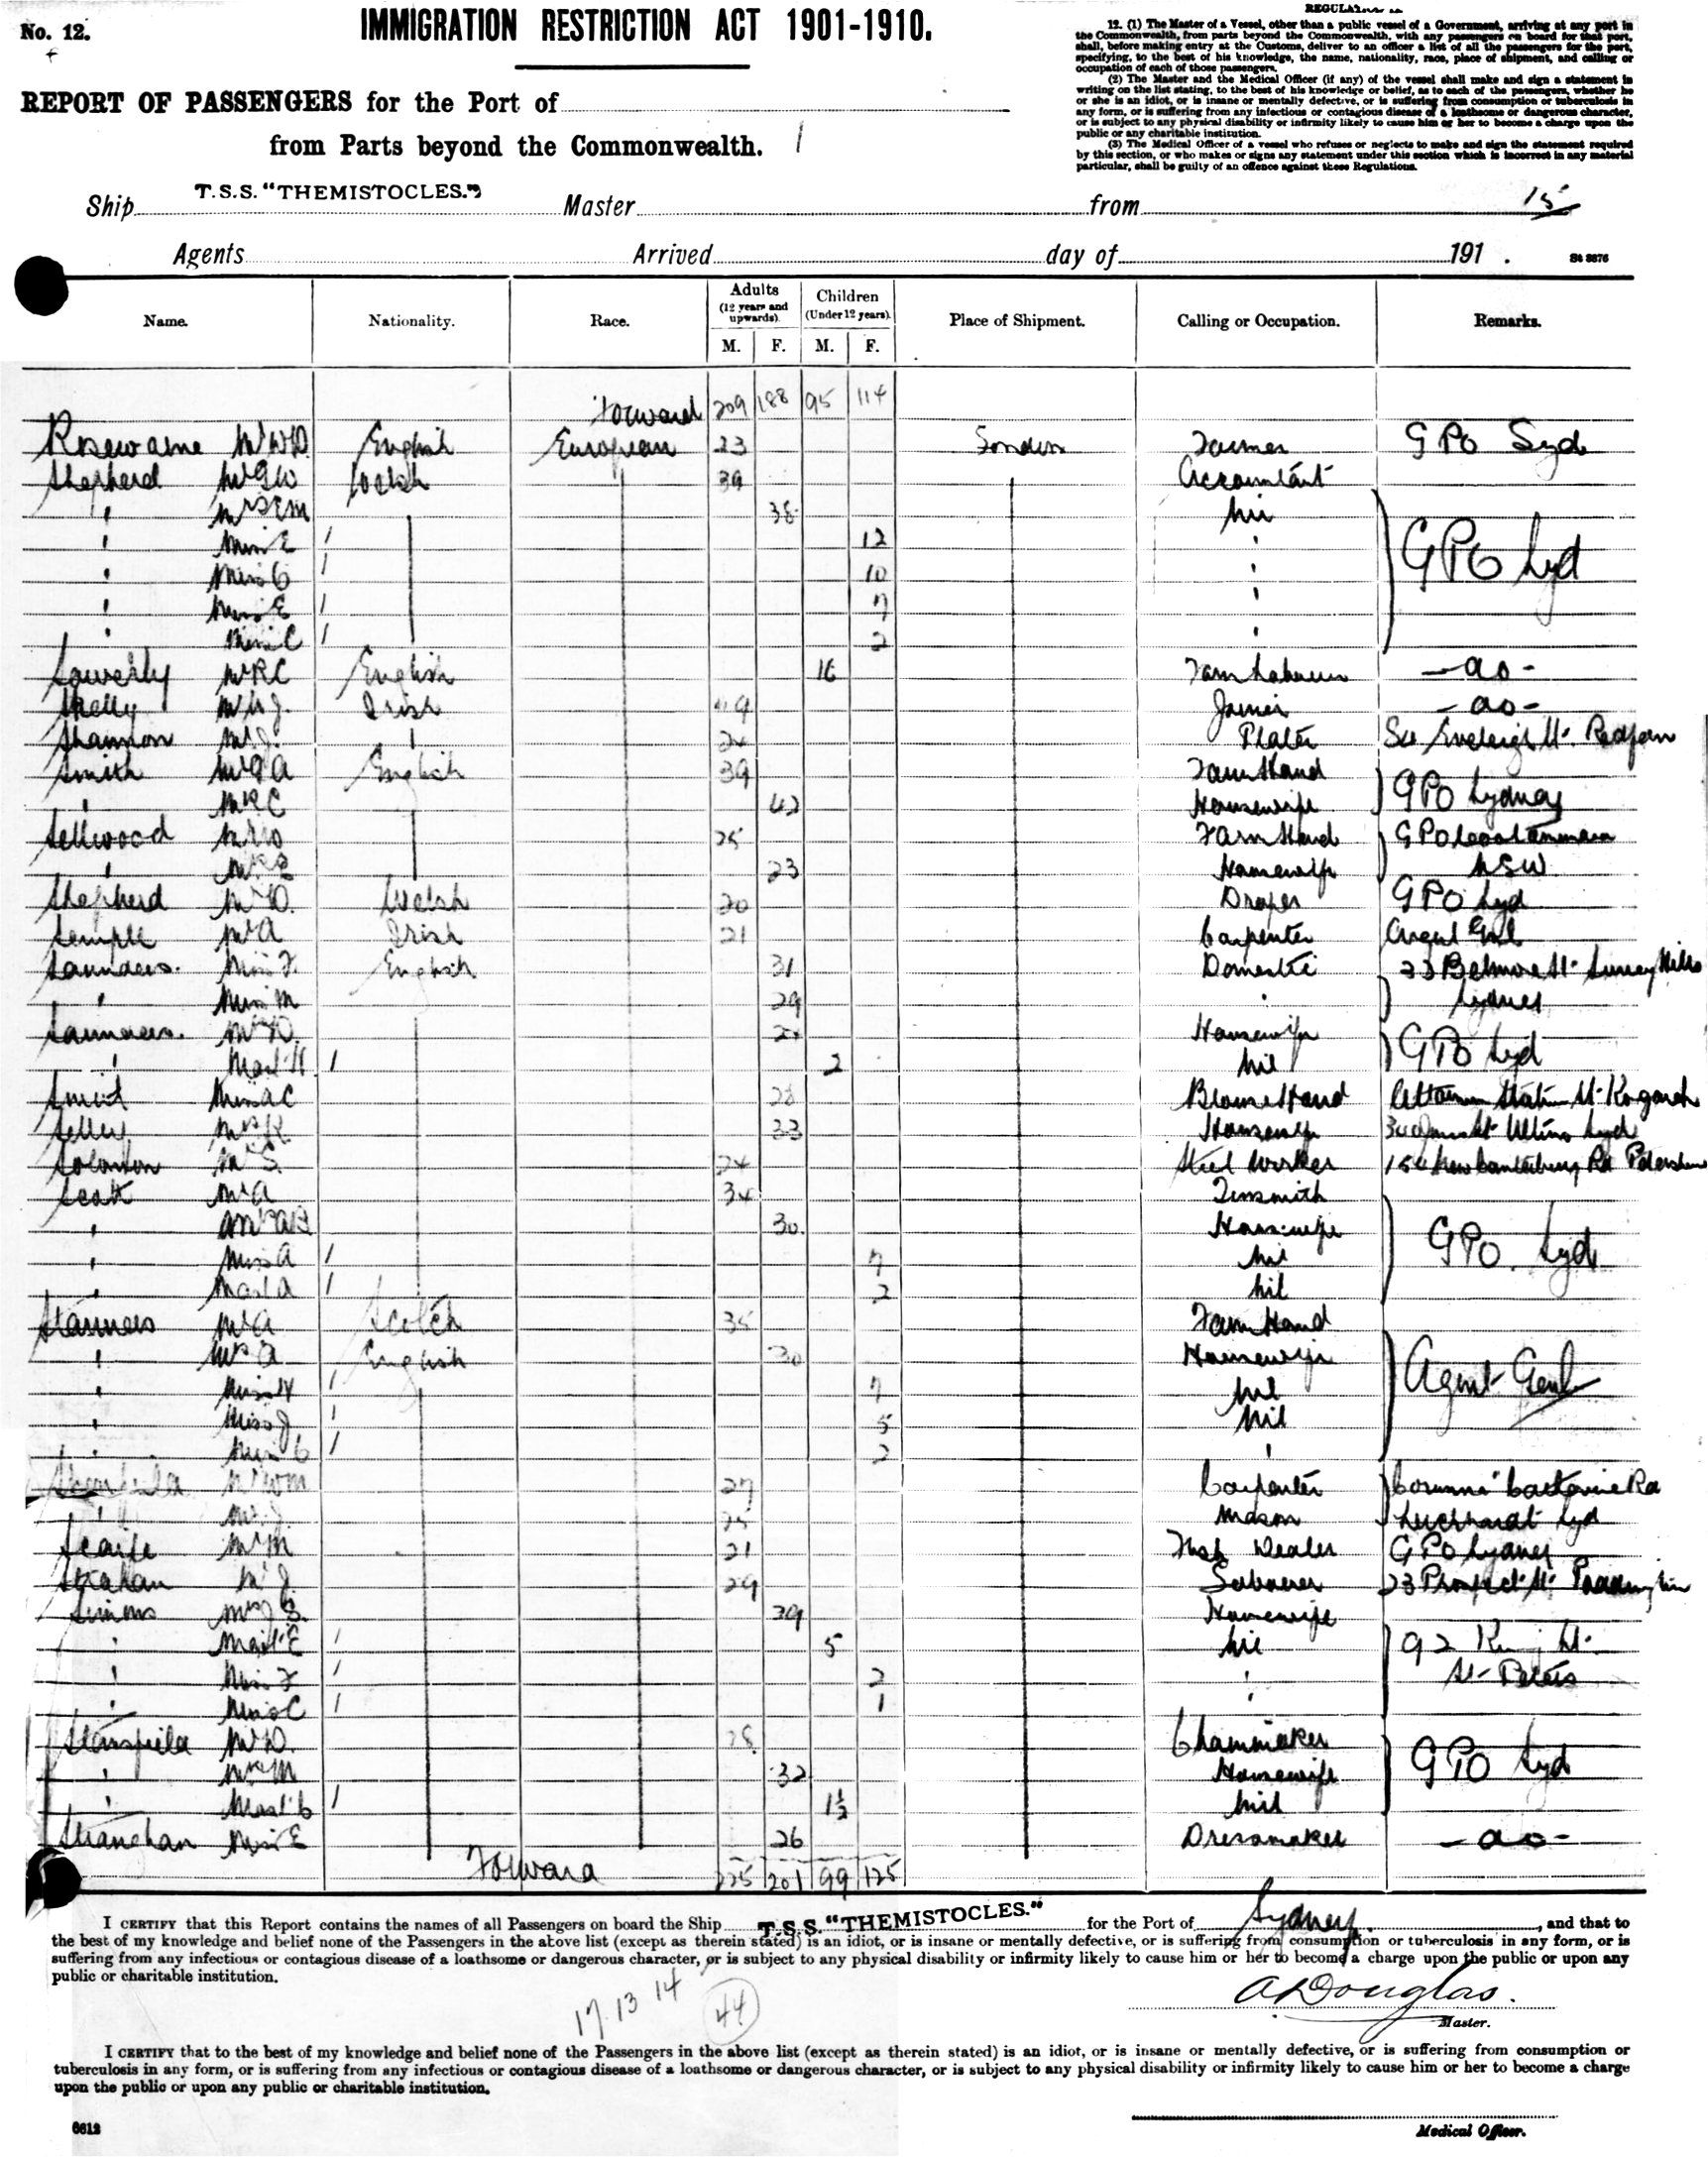 No. 12.
IMMIGRATION RESTRICTION ACT 1901-1910.
12. (1) The Master of a Vessel, other than a public vessel of a Government, arriving at any port in
the Commonwealth, from parts beyond the Commonwealth, with any passengers on board for that port,
shall, before making entry at the Customs, deliver to an officer a list of all the passengers for the port,
specifying, to the best of his knowledge, the name, nationality, race, place of shipment, and calling or
occupation of each of those passengers.
(2) The Master and the Medical Officer (if any) of the vessel shall make and sign a statement in
writing on the list stating, to the best of his knowledge or belief, as to each of the passengers, whether he
or she is an idiot, or is insane or mentally defective, or is suffering from consumption or tuberculosis in
any form, or is suffering from any infectious or contagious disease of a loathsome or dangerous character,
or is subject to any physical disability or infirmity likely to cause him or her to become a charge upon the
public or any charitable institution.
(3) The Medical Officer of a vessel who refuses or neglects to make and sign the statement required
by this section, or who makes or signs any statement under this section which is incorrect in any material
particular, shall be guilty of an offence against these Regulations.
REPORT OF PASSENGERS for the Port of
from Parts beyond the Commonwealth.
Ship T.S.S. "THEMISTOCLES." Master from 15
Agents Arrived day of 191 .
Name. Nationality. Race. Adults (12 years and upwards). Children (Under 12 years). Place of Shipment. Calling or Occupation. Remarks.
M. F. M. F.
Forward 209 188 95 114
Rosewarne Mr W.D. English European 23 London Farmer GPO Syd
Shepherd Mr G W Welsh 39 Accountant
" Mrs E M 38 Nil
" Miss E 12 " GPO Syd
" Miss C 10 "
" Miss E 7 "
" Miss C 2 "
Mr R C English 16 Farm Labourer - do -
Skelly Mr W J. Irish 49 Joiner - do -
Shannon Mr J. " 24 Plater Eveleigh St. Redfern
Smith Mr G A English 39 Farm Hand GPO Sydney
" Mrs C 42 Housewife
Sellwood Mr W 25 Farm Hand GPO Cootamundra
" Mrs E 23 Housewife NSW
Shepherd Mr D. Welsh 20 Draper GPO Syd
Semple Mr A Irish 21 Carpenter Agent Genl
Saunders. Miss F. English 31 Domestic 23 Belmore St. Surrey Hills
" Miss M 29 " Sydney
Saunders. Mrs D. Housewife GPO Syd
" Mast H 2 Nil
Miss A C 28 Blouse Hand Station St. Kogarah
Selley Mrs K 33 Housewife St. Ultimo Syd
Solomon Mr S. 24 Steel Worker 154 New Canterbury Rd Petersham
Scott Mr A 34 Tinsmith
" Mrs A B 30. Housewife GPO. Syd
" Miss A 7 Nil
" Mast A 2 Nil
Stanners Mr A Scotch 35 Farm Hand
" Mrs A English 30 Housewife Agent Genl
" Miss H 7 Nil
" Miss J 5 Nil
" Miss C 2 "
Mr Wm 27 Carpenter "Corunna" Catherine Rd
" Mr J. 25 Mason Leichhardt Syd
Scaife Mr M 21 Fish Dealer GPO Sydney
Strahan Mr J. 29 Labourer 23 Prospect St. Paddington
Simons Mrs J S. 39 Housewife
" Mast E 5 Nil 92 King St.
" Miss F 2 " St. Peters
" Miss C 1 "
Stansfield Mr D. 28 Chainmaker
" Mrs M 32 Housewife GPO Syd
" Mast C 1½ Nil
Stranghan Miss E 26 Dressmaker - do -
Forward 225 201 99 125
I CERTIFY that this Report contains the names of all Passengers on board the Ship T.S.S. "THEMISTOCLES." for the Port of Sydney. , and that to
the best of my knowledge and belief none of the Passengers in the above list (except as therein stated) is an idiot, or is insane or mentally defective, or is suffering from consumption or tuberculosis in any form, or is
suffering from any infectious or contagious disease of a loathsome or dangerous character, or is subject to any physical disability or infirmity likely to cause him or her to become a charge upon the public or upon any
public or charitable institution.
17 13 14 44
A Douglas.
Master.
I CERTIFY that to the best of my knowledge and belief none of the Passengers in the above list (except as therein stated) is an idiot, or is insane or mentally defective, or is suffering from consumption or
tuberculosis in any form, or is suffering from any infectious or contagious disease of a loathsome or dangerous character, or is subject to any physical disability or infirmity likely to cause him or her to become a charge
upon the public or upon any public or charitable institution.
6612
Medical Officer.